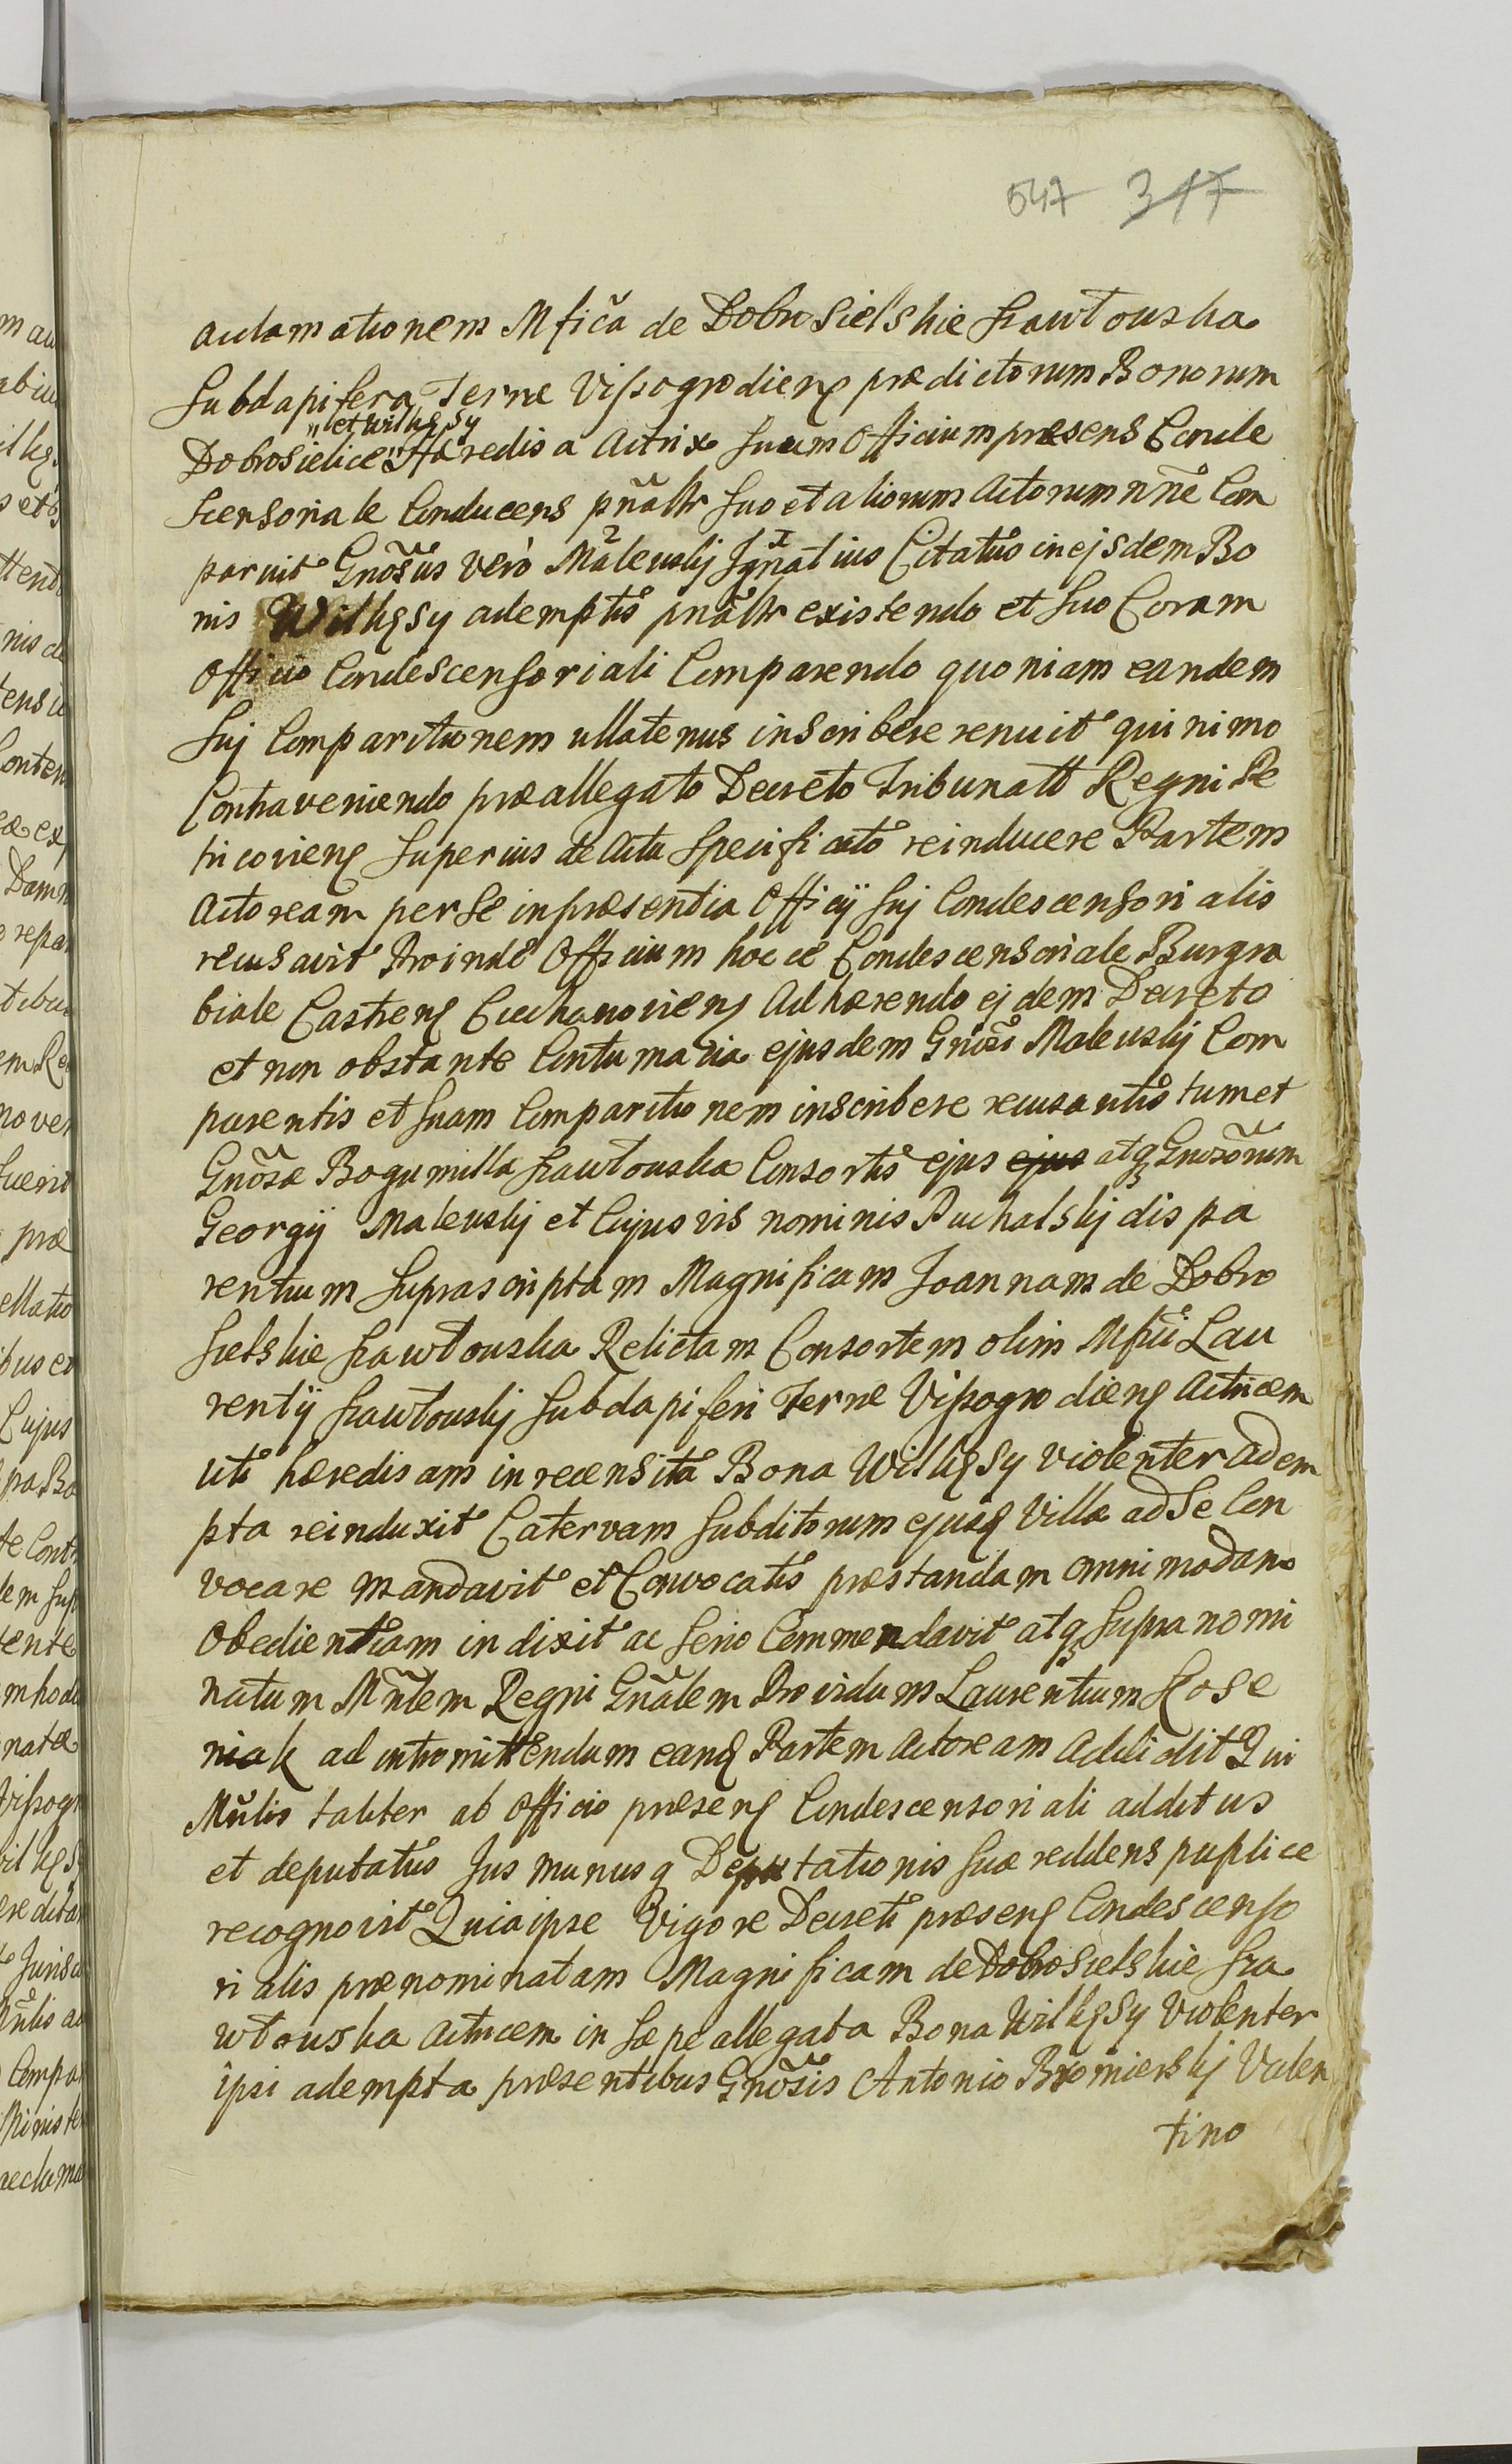 547 317
aclamationem Mfica de Dobrosielskie Hawłowska
Subdapifera Terræ Vissogrodiens prædictorum Bonorum
"et wilkęsy
Dobrosielice" Hæredis a Actrix Suum Officium præsens Conde
scensoriale Conducens pñaltr suo et aliorum Actorum nñe Com
paruit Gnõsus verò Malewskj Ignatius Citatus in ejsdem Bo
nis Wilkęsy ademptis pñaltr existendo et suo Coram
Officio Condescensoriali Comparendo quoniam eandem
Suj Comparitionem ullatenus inscribere renuit quinimo
Contraveniendo præallegato Decreto Tribunatt Regni Pe
tricoviens Superius de Actu Specificato reinducere Partem
Actoream per se in præsentia Officÿ Suj Condescensorialis
recusavit Proinde Officium hocce Condescensoriale Burgra
biale Castrens Ciechanoviens Adhærendo ejdem Decreto
et non obstante Contumacia ejusdem Gnõsi Malewskj Com
parentis et Suam Comparitionem inscribere recusantis tum et
Gnõsæ Bogumilla Hawłowska Consortis ejus ejus atq Gnosõrum
Georgÿ Malewskj et Cujusvis nominis Puchalskj dispa
rentium Suprascriptam Magnificam Joannam de Dobro
sielskie Hawłowska Relictam Consortem olim Mfici Lau
rentÿ Hawłowskj Subdapiferi Terræ Vissogrodiens Actricem
uti hæredisam in recensita Bona Wilkęsy violenter adem
pta reinduxit Catervam Subditorum ejusq Villæ ad se Con
vocare mandavit et Convocatis præstandam omnimodam
Obedientiam indixit ac serio Commendavit atq Supra nomi
natum Mñlem Regni Gñalem Providum Laurentium Kose
niak ad intromittendum eand Partem Actoream Addidit Qui
Mñlis taliter ab Officio præsens Condescensoriali additus
et deputatus Jus munusq Deputationis suæ reddens puplice
recognovit Quia ipse Vigore Decreti præsens Condescenso
rialis prænominatam Magnificam de Dobrosielskie Ha
włowska Actricem in sæpe allegata Bona Wilkęsy Violenter
ipsi adempta præsentibus Gnõsis Antonio Bromierskj Valen
tino